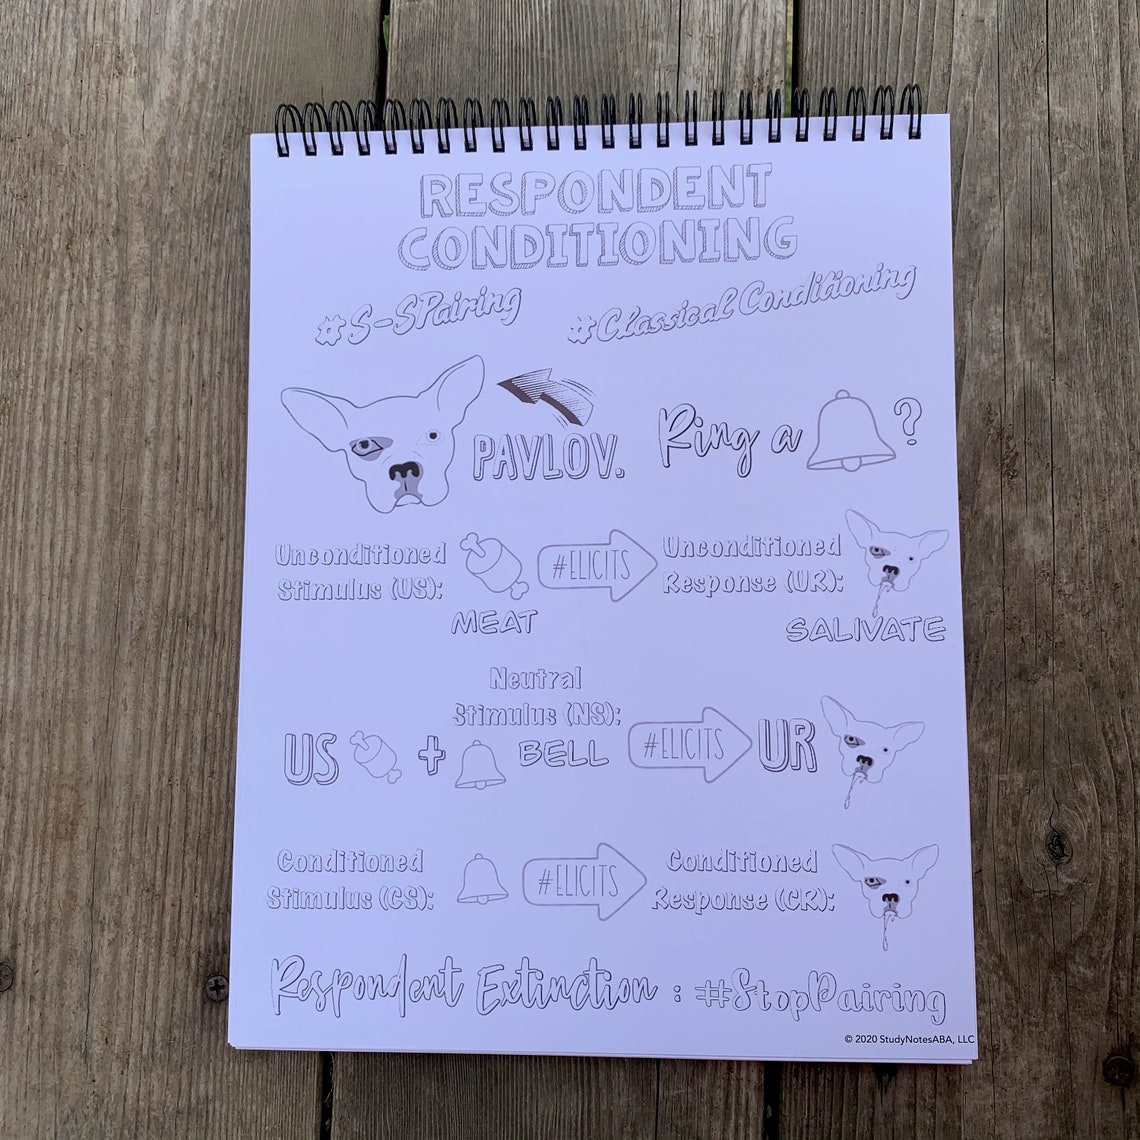 RESPONDENT
CONDITIONING
#S-SPairing #Classical Conditioning
PAVLOV. Ring a ?
Unconditioned
Stimulus (US):
MEAT
#ELICITS
Unconditioned
Response (UR):
SALIVATE
Neutral
Stimulus (NS):
US + BELL #ELICITS UR
Conditioned
Stimulus (CS):
#ELICITS
Conditioned
Response (CR):
Respondent Extinction : #StopPairing
© 2020 StudyNotesABA, LLC